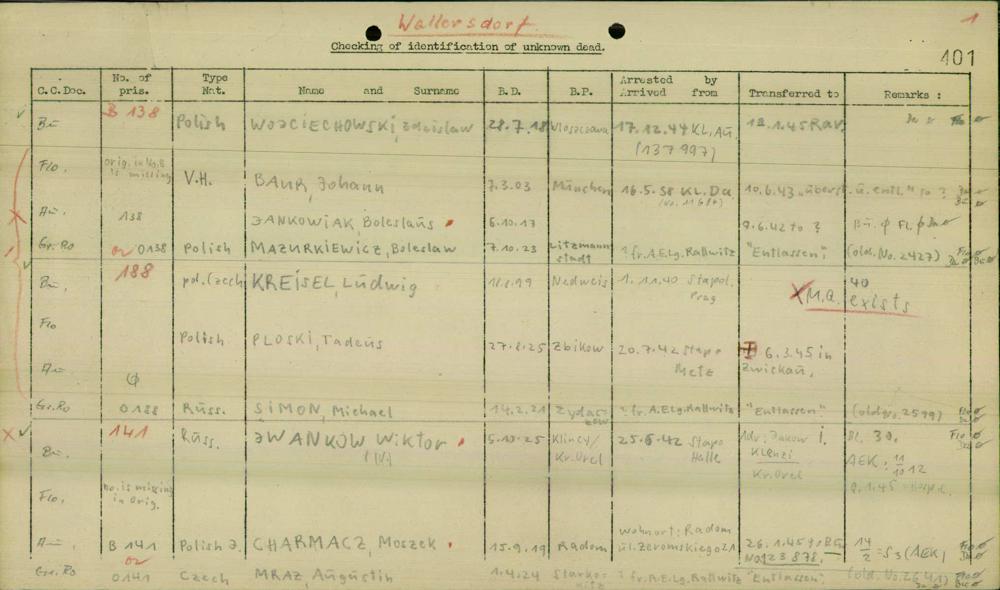 Wallersdorf.
1
Checking of identification of unknown dead.
401
C.C.Doc. No. of pris. Type Nat. Name and Surname B.D. B.P. Arrested by Arrived from Transferred to Remarks :
B 138
Bu Polish WOJCIECHOWSKI, Zdzislaw 28.7.18 Wloszczowa 17.12.44 KL. Au 18.1.45 Rav.
(137997)
Flo, orig. in No. 8 is missing V.H. BAUR, Johann 7.3.03 München 16.5.38 KL. Da 10.6.43 "überst. u. entl."
Au, 138 JANKOWIAK, Boleslaus 6.10.17 9.6.42 to ? Bu. ϕ Fl. ϕ
Gr. Ro or 0138 Polish MAZURKIEWICZ, Boleslaw 7.10.23 Litzmannstadt ? fr. A.E.Lg. Rattwitz "Entlassen", (old. No. 2427)
188
Bu, pol. Czech KREISEL, Ludwig Nedweis 1.11.40 Stapol. Prag
X M.a. exists
40
Flo
Polish PLOSKI, Tadeus 27.8.25 Zbikow 20.7.42 Stapo Metz 6.3.45 in Zwickau,
Au
Gr. Ro 0188 Russ. SIMON, Michael 14.2.21 ? fr. A.E.Lg. Rattwitz "Entlassen" (old No. 2599)
X 141
Bu. Russ. IWANKOW Wiktor 5.10.25 Klincy/ Kr. Orel 25.6.42 Stapo Halle Kr. Orel Bl. 30,
AEK: 11/10 12
9.1.45
Flo, no. is missing in orig.
wohnort: Radom
Au, B 141 Polish J. CHARMACZ, Moszek 15.9.19 Radom ul. Zeromskiego 21 26.1.45 No. 123 878. 14/2 = (AEK)
or
Gr. Ro 0141 Czech MRAZ, Augustin 1.4.24 ? fr. A.E.Lg. Rattwitz "Entlassen", (old. No. 2641)